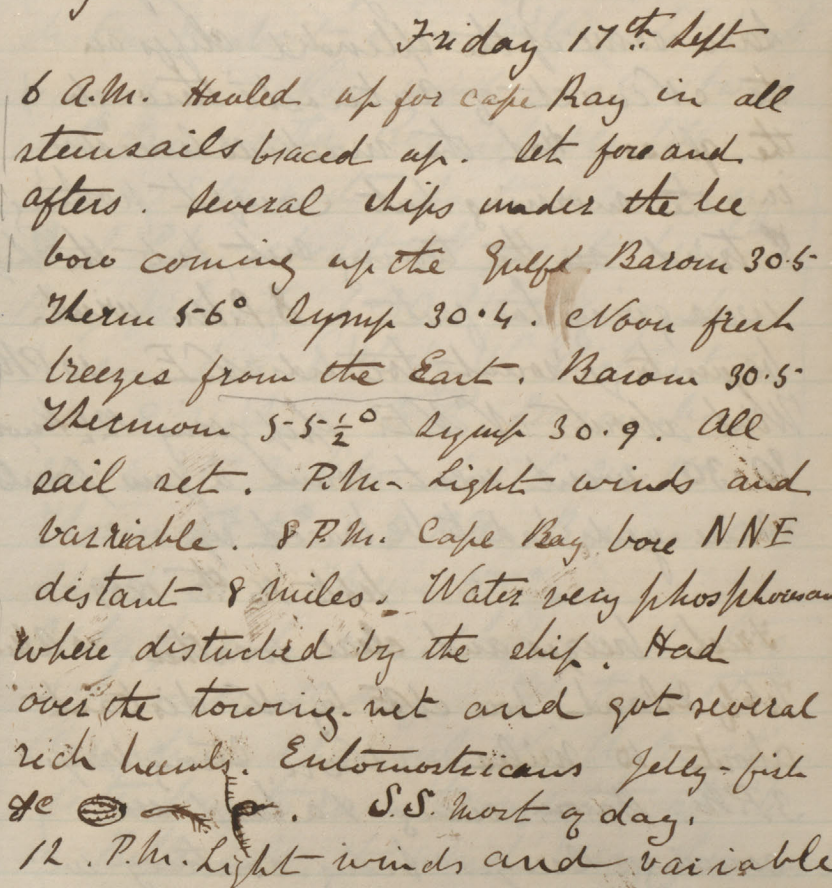 Friday 17th Sept
6 A.M. Hauled up for Cape Ray in all
stunsails braced up. Set fore and
afters. Several ships under the lee
bow coming up the Gulf. Barom 30.5
Therm 56° Symp 30.4. Noon fresh
breezes from the East. Barom 30.5
Thermom 55½° Symp 30.9. All
sail set. P.M. Light winds and
varriable. 8 P.M. Cape Ray bore NNE
distant 8 miles. Water very
where disturbed by the ship. Had
over the towing-net and got several
rich hauls. Entomostricans Jelly-fish
&c . S.S. most of day.
12. P.M. Light winds and variable